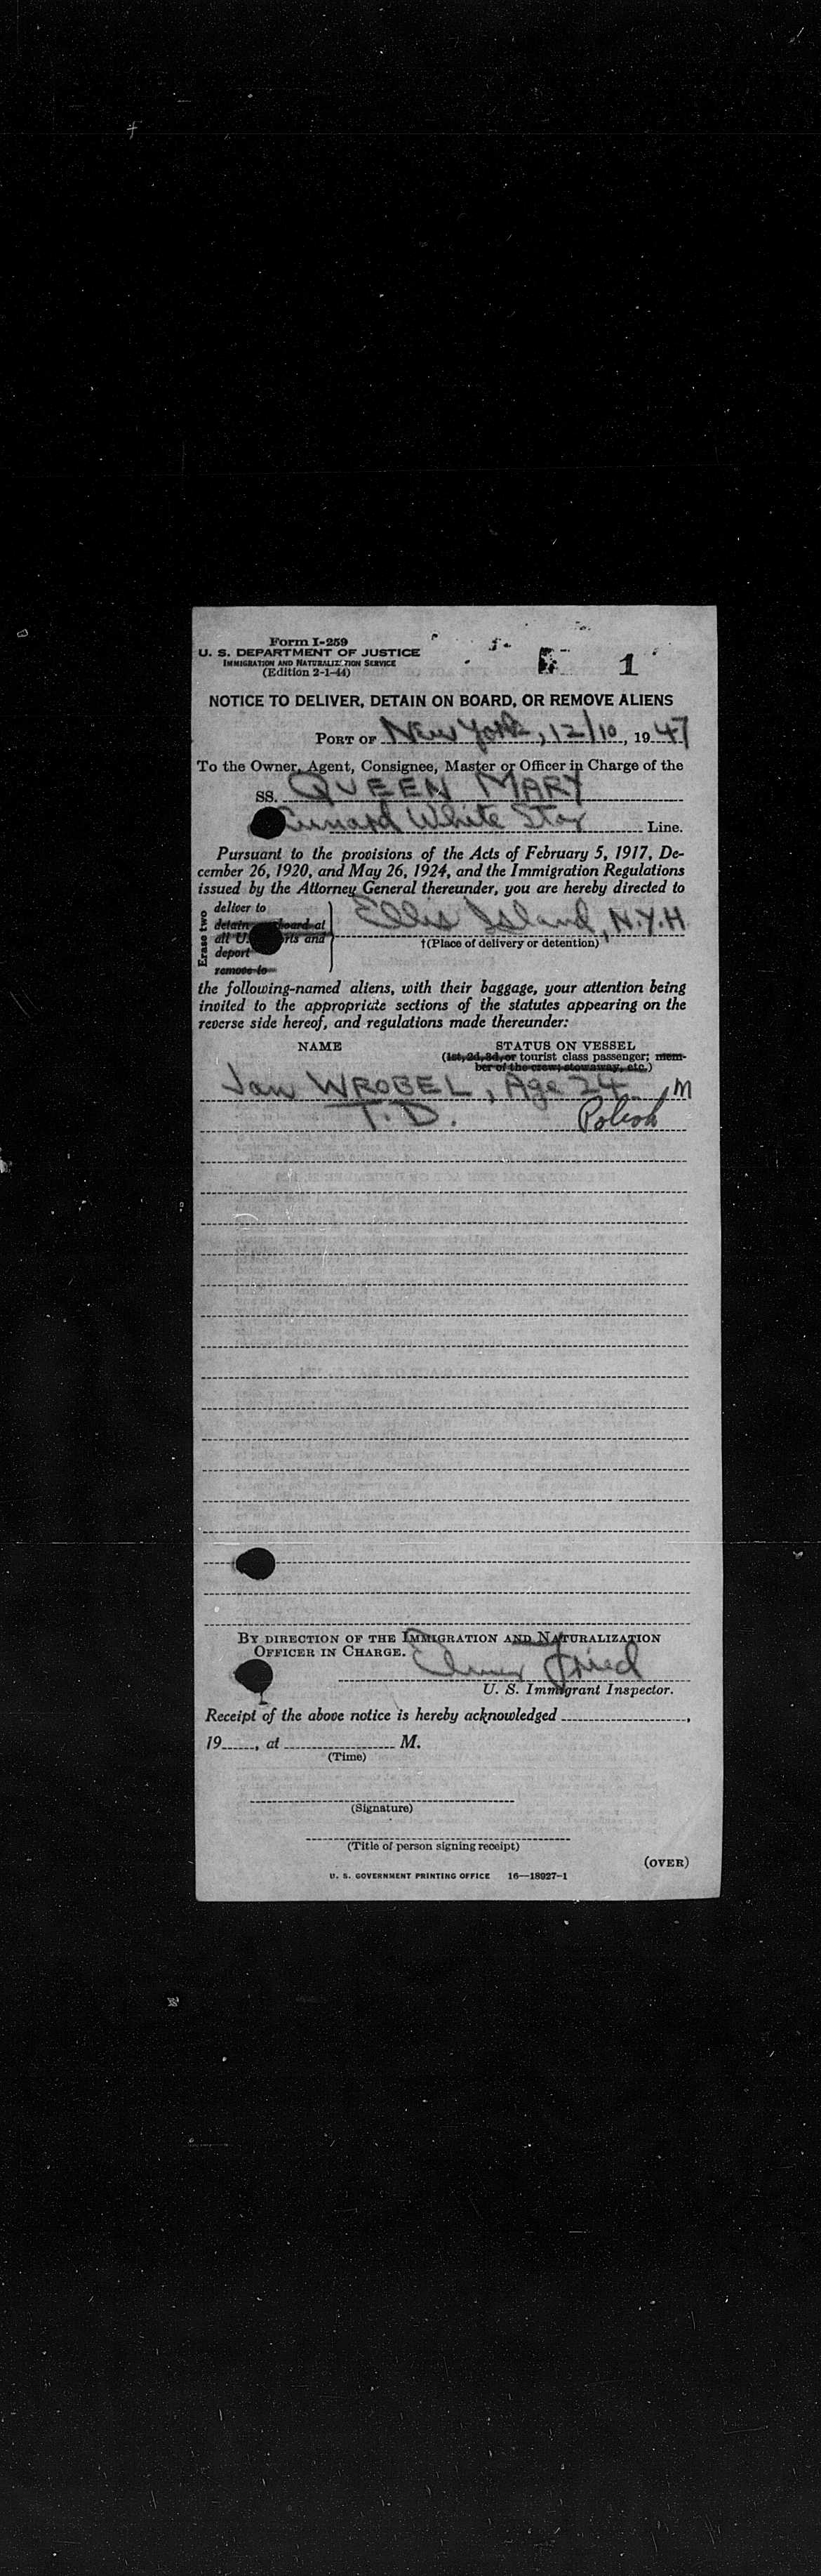 Form I-259
U. S. DEPARTMENT OF JUSTICE
IMMIGRATION AND NATURALIZATION SERVICE
(Edition 2-1-44)
1
NOTICE TO DELIVER, DETAIN ON BOARD, OR REMOVE ALIENS
PORT OF New York, 12/10, 1947
To the Owner, Agent, Consignee, Master or Officer in Charge of the
SS. QUEEN MARY
Cunard White Star Line.
Pursuant to the provisions of the Acts of February 5, 1917, De-
cember 26, 1920, and May 26, 1924, and the Immigration Regulations
issued by the Attorney General thereunder, you are hereby directed to
Erase two
deliver to
detain board at
all U. rts and
deport
remove to
Ellis Island, N.Y.H
†(Place of delivery or detention)
the following-named aliens, with their baggage, your attention being
invited to the appropriate sections of the statutes appearing on the
reverse side hereof, and regulations made thereunder:
NAME STATUS ON VESSEL
(1st, 2d, 3d, or tourist class passenger; mem-
ber of the crew; stowaway, etc.)
Jan WROBEL, Age 24 M
T.D. Polish
BY DIRECTION OF THE IMMIGRATION AND NATURALIZATION
OFFICER IN CHARGE.
Elmer Fried
U. S. Immigrant Inspector.
Receipt of the above notice is hereby acknowledged ,
19 , at M.
(Time)
(Signature)
(Title of person signing receipt)
(OVER)
U. S. GOVERNMENT PRINTING OFFICE 16—18927-1